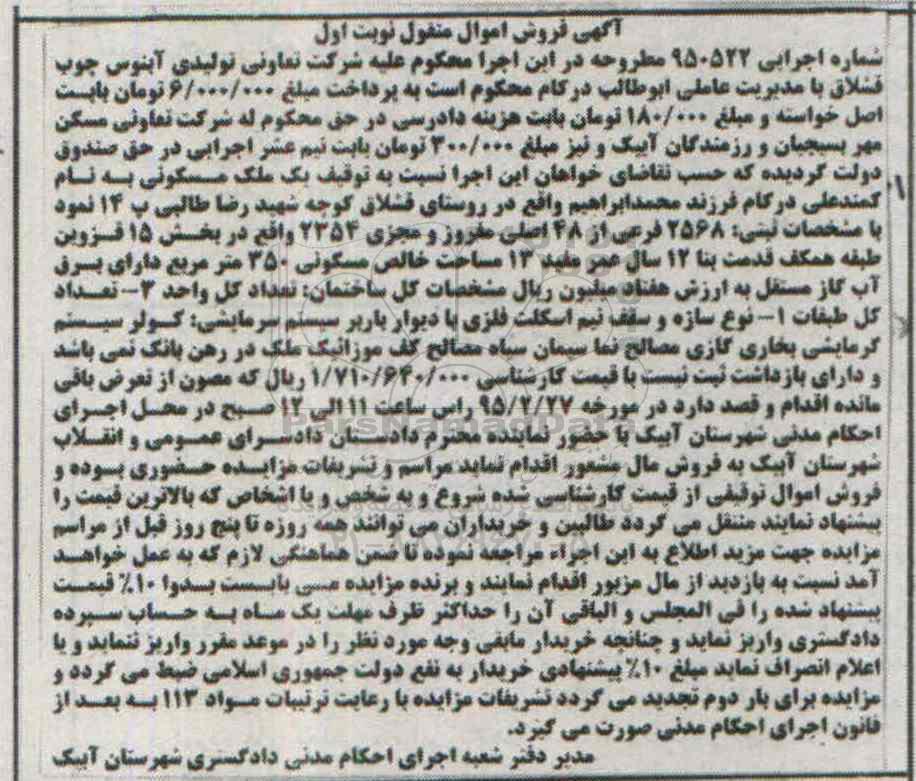 آگهی فروش اموال منقول نوبت اول
شماره اجرایی ۹۵۰۵۲۲ مطروحه در این اجرا محکوم علیه شرکت تعاونی تولیدی آبنوس چوب
قشلاق با مدیریت عاملی ابوطالب درکام محکوم است به پرداخت مبلغ ۶/۰۰۰/۰۰۰ تومان بابت
اصل خواسته و مبلغ ۱۸۰/۰۰۰ تومان بابت هزینه دادرسی در حق محکوم له شرکت تعاونی مسکن
مهر بسیجیان و رزمندگان آبیک و نیز مبلغ ۳۰۰/۰۰۰ تومان بابت نیم عشر اجرایی در حق صندوق
دولت گردیده که حسب تقاضای خواهان این اجرا نسبت به توقیف یک ملک مسکونی به نام
کمندعلی درکام فرزند محمدابراهیم واقع در روستای قشلاق کوچه شهید رضا طالبی پ ۱۴ نمود
با مشخصات ثبتی: ۲۵۶۸ فرعی از ۴۸ اصلی مفروز و مجزی ۲۳۵۴ واقع در بخش ۱۵ قزوین
طبقه همکف قدمت بنا ۱۲ سال عمر مفید ۱۳ مساحت خالص مسکونی ۳۵۰ متر مربع دارای برق
آب گاز مستقل به ارزش هفتاد میلیون ریال مشخصات کل ساختمان: تعداد کل واحد ۳- تعداد
کل طبقات ۱- نوع سازه و سقف نیم اسکلت فلزی با دیوار باربر سیستم سرمایشی: کولر سیستم
گرمایشی بخاری گازی مصالح نما سیمان سیاه مصالح کف موزائیک ملک در رهن بانک نمی باشد
و دارای بازداشت ثبت نیست با قیمت کارشناسی ۱/۷۱۰/۶۴۰/۰۰۰ ریال که مصون از تعرض باقی
مانده اقدام و قصد دارد در مورخه ۹۵/۲/۲۷ راس ساعت ۱۱ الی ۱۲ صبح در محل اجرای
احکام مدنی شهرستان آبیک با حضور نماینده محترم دادستان دادسرای عمومی و انقلاب
شهرستان آبیک به فروش مال مشعور اقدام نماید مراسم و تشریفات مزایده حضوری بوده و
فروش اموال توقیفی از قیمت کارشناسی شده شروع و به شخص و یا اشخاص که بالاترین قیمت را
پیشنهاد نمایند منتقل می گردد طالبین و خریداران می توانند همه روزه تا پنج روز قبل از مراسم
مزایده جهت مزید اطلاع به این اجراء مراجعه نموده تا ضمن هماهنگی لازم که به عمل خواهد
آمد نسبت به بازدید از مال مزبور اقدام نمایند و برنده مزایده می بایست بدوا ۱۰٪ قیمت
پیشنهاد شده را فی المجلس و الباقی آن را حداکثر ظرف مهلت یک ماه به حساب سپرده
دادگستری واریز نماید و چنانچه خریدار مابقی وجه مورد نظر را در موعد مقرر واریز ننماید و یا
اعلام انصراف نماید مبلغ ۱۰٪ پیشنهادی خریدار به نفع دولت جمهوری اسلامی ضبط می گردد و
مزایده برای بار دوم تجدید می گردد تشریفات مزایده با رعایت ترتیبات مواد ۱۱۳ به بعد از
قانون اجرای احکام مدنی صورت می گیرد.
مدیر دفتر شعبه اجرای احکام مدنی دادگستری شهرستان آبیک
ParsNamadData